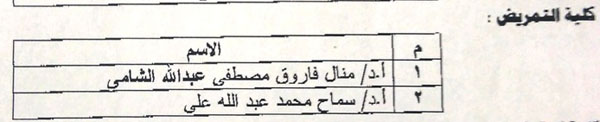 كلية التمريض :
م الاسم
١ أ.د/ منال فاروق مصطفى عبدالله الشامى
٢ أ.د/ سماح محمد عبد الله على